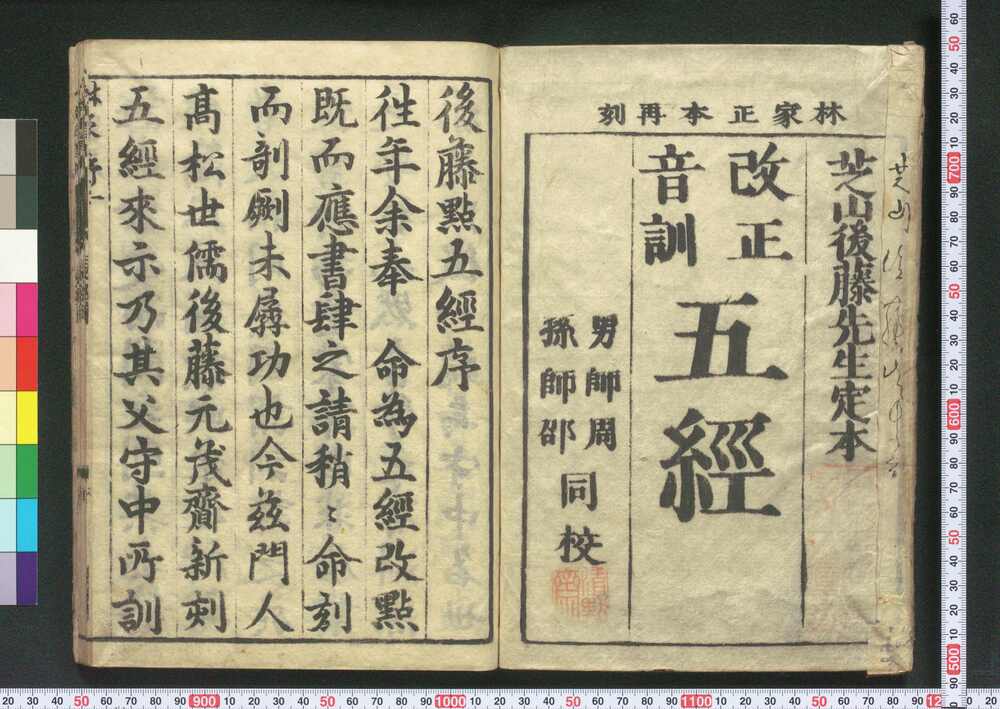 林家正本再刻
芝山後藤先生定本
改正
音訓
五經
男師周
孫師邵
同校
後藤點五經序
徃年余奉 命為五經改點
既而應書肆之請稍〻命刻
而剞劂未孱功也今玆門人
髙松世儒後藤元茂齎新刻
五經來示乃其父守中所訓